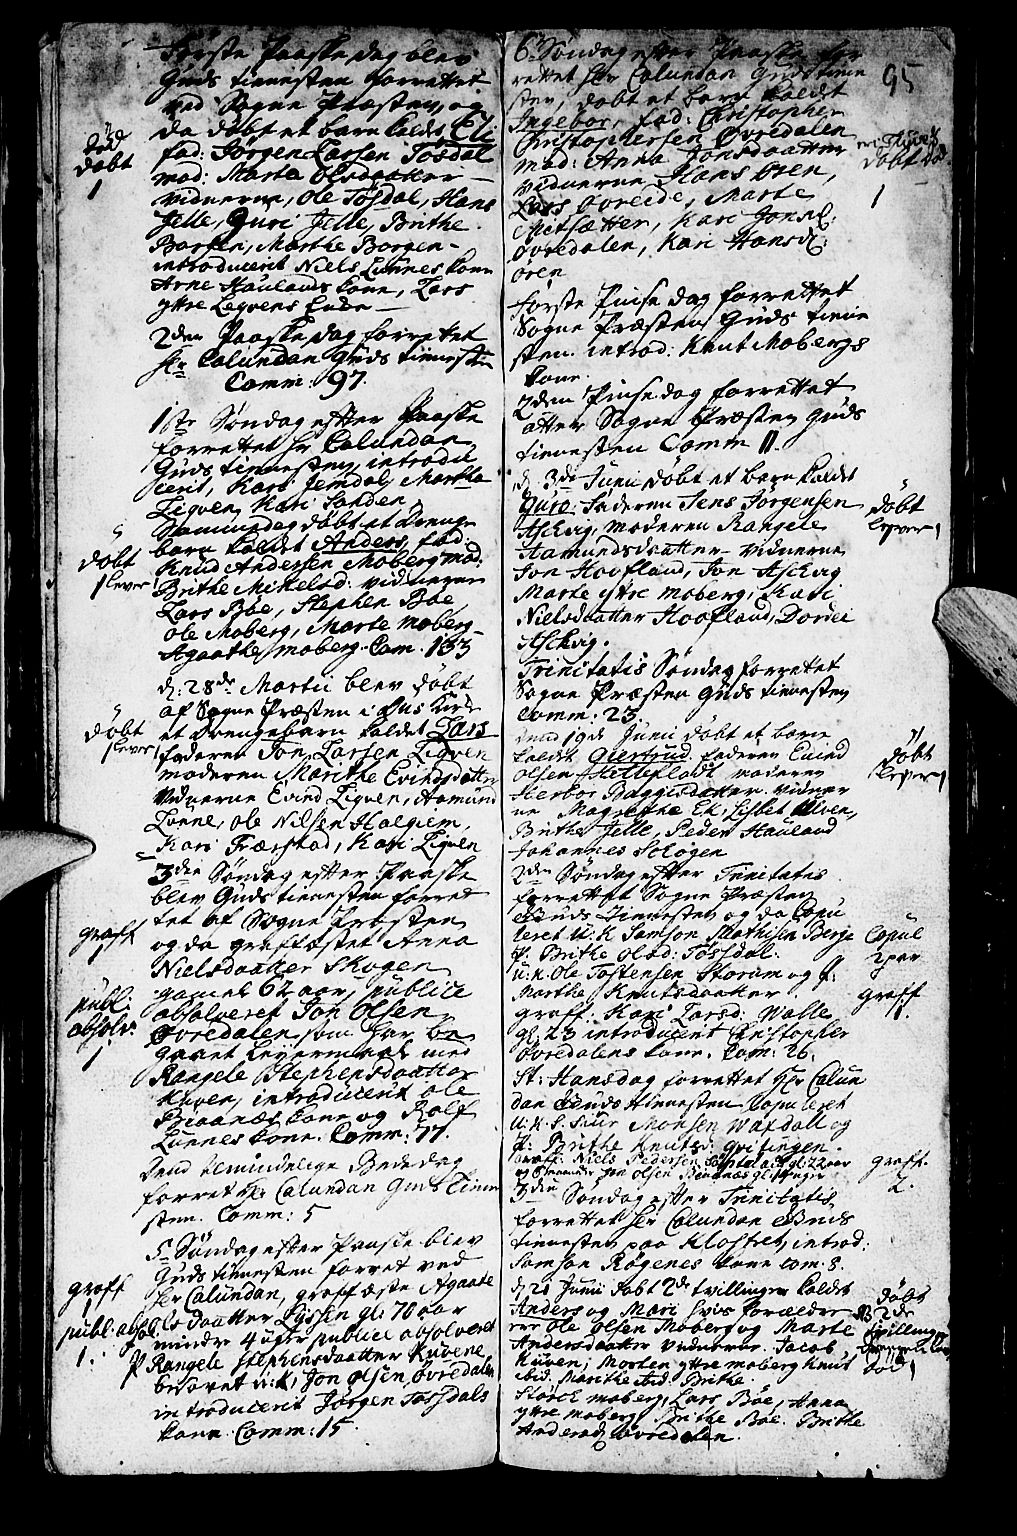 Første Paaske dag blev
Guds tienesten forrettet
ved Sogne Præsten, og
da døbt et barn kaldet Eli
død
døbt
1
fad: Jørgen Larsen Tøsdal
mod: Marta Olsdaatter
vidnerne, Ole Tøsdal, Hans
Jelle, Guri Jelle, Brithe
Borgen, Marthe Borgen
introducerit Niels Lunnes kone
Arne Haulands kone, Lars
yttre Legvens kone
2den Paaske dag forrettet
Hr Calundan Guds tienesten
Comm: 97.
1ste Søndag efter Paaske
forrettet hr Calundan
Guds tienesten, introdu
cerit, Kari Jemdal, Martha
Ligven, Kari Sanden
Samme dag døbt et Drenge
døbt
1 lever
barn kaldet Anders, fad:
Knud Andersen Moberg mod:
Brithe Mikelsd: vidnerne
Lars Bøe, Stephen Bøe
Ole Moberg, Marte Moberg
Agaathe Moberg. Com. 133
d: 28de Martii blev døbt
af Sogne Præsten i Huus Kirke
døbt
1 lever
et Drengebarn kaldet Lars
faderen Jon Larsen Ligven
moderen Marithe Evindsdatter
vidnerne Evind Ligven, Aamund
Lunne, Ole Nilsen Halgiem,
Kari Trærstad, Kari Ligven
3die Søndag efter Paaske
blev Guds tienesten forret
tet af Sogne Præsten
graff
1
og da graffæstet Anna
Nielsdaatter Skogen
gamel 62 aar, publice
publ:
absolv:
1
absolveret Jon Olsen
Øvredalen som har be
gaaet Leyermaal med
Rangele Stephensdaatter
Kuven, introducerit Ole
Biaanæs kone og Rolf
Lunnes kone. Comm: 77.
Den Almindelige Bededag
forret Hr Calundan Guds Tiene
sten. Comm: 5
5te Søndag efter Paaske blev
Guds tienesten forret ved
graff
1
Hr Calundan, graffæste Agaate
Olsdaatter Lysen gl: 70 aar
publ: absol:
1.
minder 4 uger publice absolveret
P Rangele Stephensdaatter Kuvene
besovet u: k: Jon Olsen Øvredalen
introducerit Jørgen Tøssdals
kone. Comm: 15.
95
6te Søndag efter Paaske for
rettet Hr Calundan Guds tiene
sten, døbt et barn kaldet
døbt
1
Ingebor, fad: Christopher
Christophersen Øvredalen
mod: Anna Jonsdaatter
vidnerne Hans Øren,
Lars Øvreide, Marte
Mitsætter, Kari Jonsd:
Øvredalen, Kari Hansd:
Øren
Første Pinse dag forrettet
Sogne Præsten Guds tiene
sten. introd: Knut Mobergs
kone.
2den Pinse dag forrettet
atter Sogne Præsten Guds
tienesten Comm 11.
d. 3de Junii døbt et barn kaldet
døbt
lever 1
Gure: Faderen Jens Jørgensen
Askvig, moderen Rangele
Aamundsdaatter. vidnerne
Jon Hoofland, Jon Askvig
Marte yttre Moberg, Kari
Nielsdaatter Hoofland, Dordei
Askvig.
Trinitatis Søndag forrettet
Sogne Præsten Guds tienesten
Comm: 23.
19de Junii døbt et barn
døbt
lever 1
kaldet Giertrud, faderen Evind
Olsen moderen
Herbor Baggesdaatter. vidner
ne Magrethe Ek, Lisbet Ulven,
Brithe Jelle, Peder Hauland
Johannes Scløgen
2den Søndag efter Trinitatis
forrettet Sogne Præsten
Guds Tienesten og da Copu
Copul
2 par
leret u: k Samson Mathisen Berge
P: Brithe Olsd: Tøssdal.
u: k. Ole Tostensen Storum og P:
Marthe Knutsdaatter.
graff.
1.
graff: Kari Larsd: Walle
gl: 23 introducerit Christopher
Øvredalens kone. Com: 26.
St: Hansdag forrettet Hr Calun
dan Guds tienesten Copuleret
u: k. S. Siur Monsen Waxdall og
P: Brithe Knutsd: Gritingen.
graff.
2.
graff: Niels Pedersen gl: 22 aar
3die Søndag efter Trinitatis,
forrettet Hr Calundan Guds
tienesten paa Klostret, introd:
Samson Røgenes kone com: 8.
døbt
2de
tvillinger
d 20 Junii døbt 2de tvillinger kaldet
Anders og Mari hvis forældre
er Ole Olsen Moberg og Marte
Andersdaatter vidnerne. Jacob
Kuven, Morten yttre moberg Knut
ibid. Marithe ibid. Brithe
Størck moberg, Lars Bøe, Anna
yttre moberg, Brithe Bøe. Brithe
Andersd: Øvredalen.